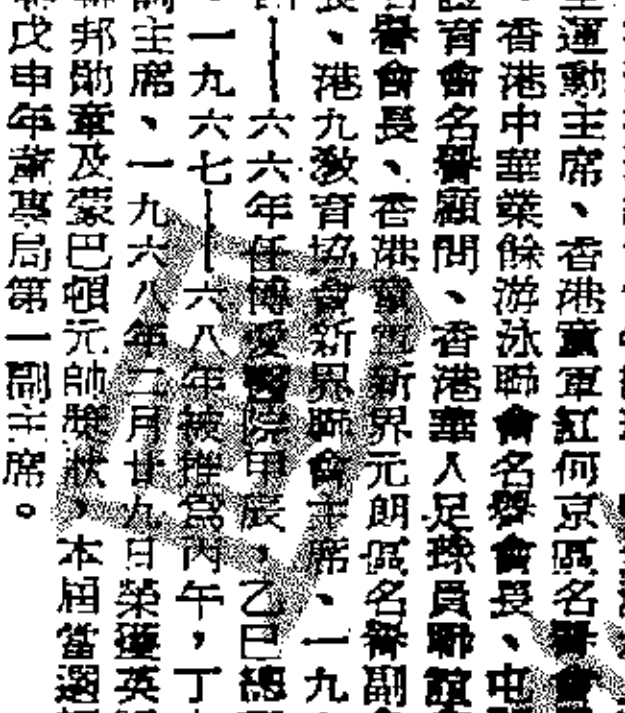 運動主席、香港童軍紅何京區名譽會
香港中華業餘游泳聯會名譽會長、中
育會名譽顧問、香港華人足球員聯誼
譽會長、香港童軍新界元朗區名譽副
、港九教育協會新界聯會主席、一九
——六六年任博愛醫院甲辰、乙巳總
一九六七——六八年被推為丙午,丁
主席、一九六八年二月廿九日榮獲英
邦勛章及蒙巴頓元帥獎狀,本屆當選
戊申年董事局第一副主席。